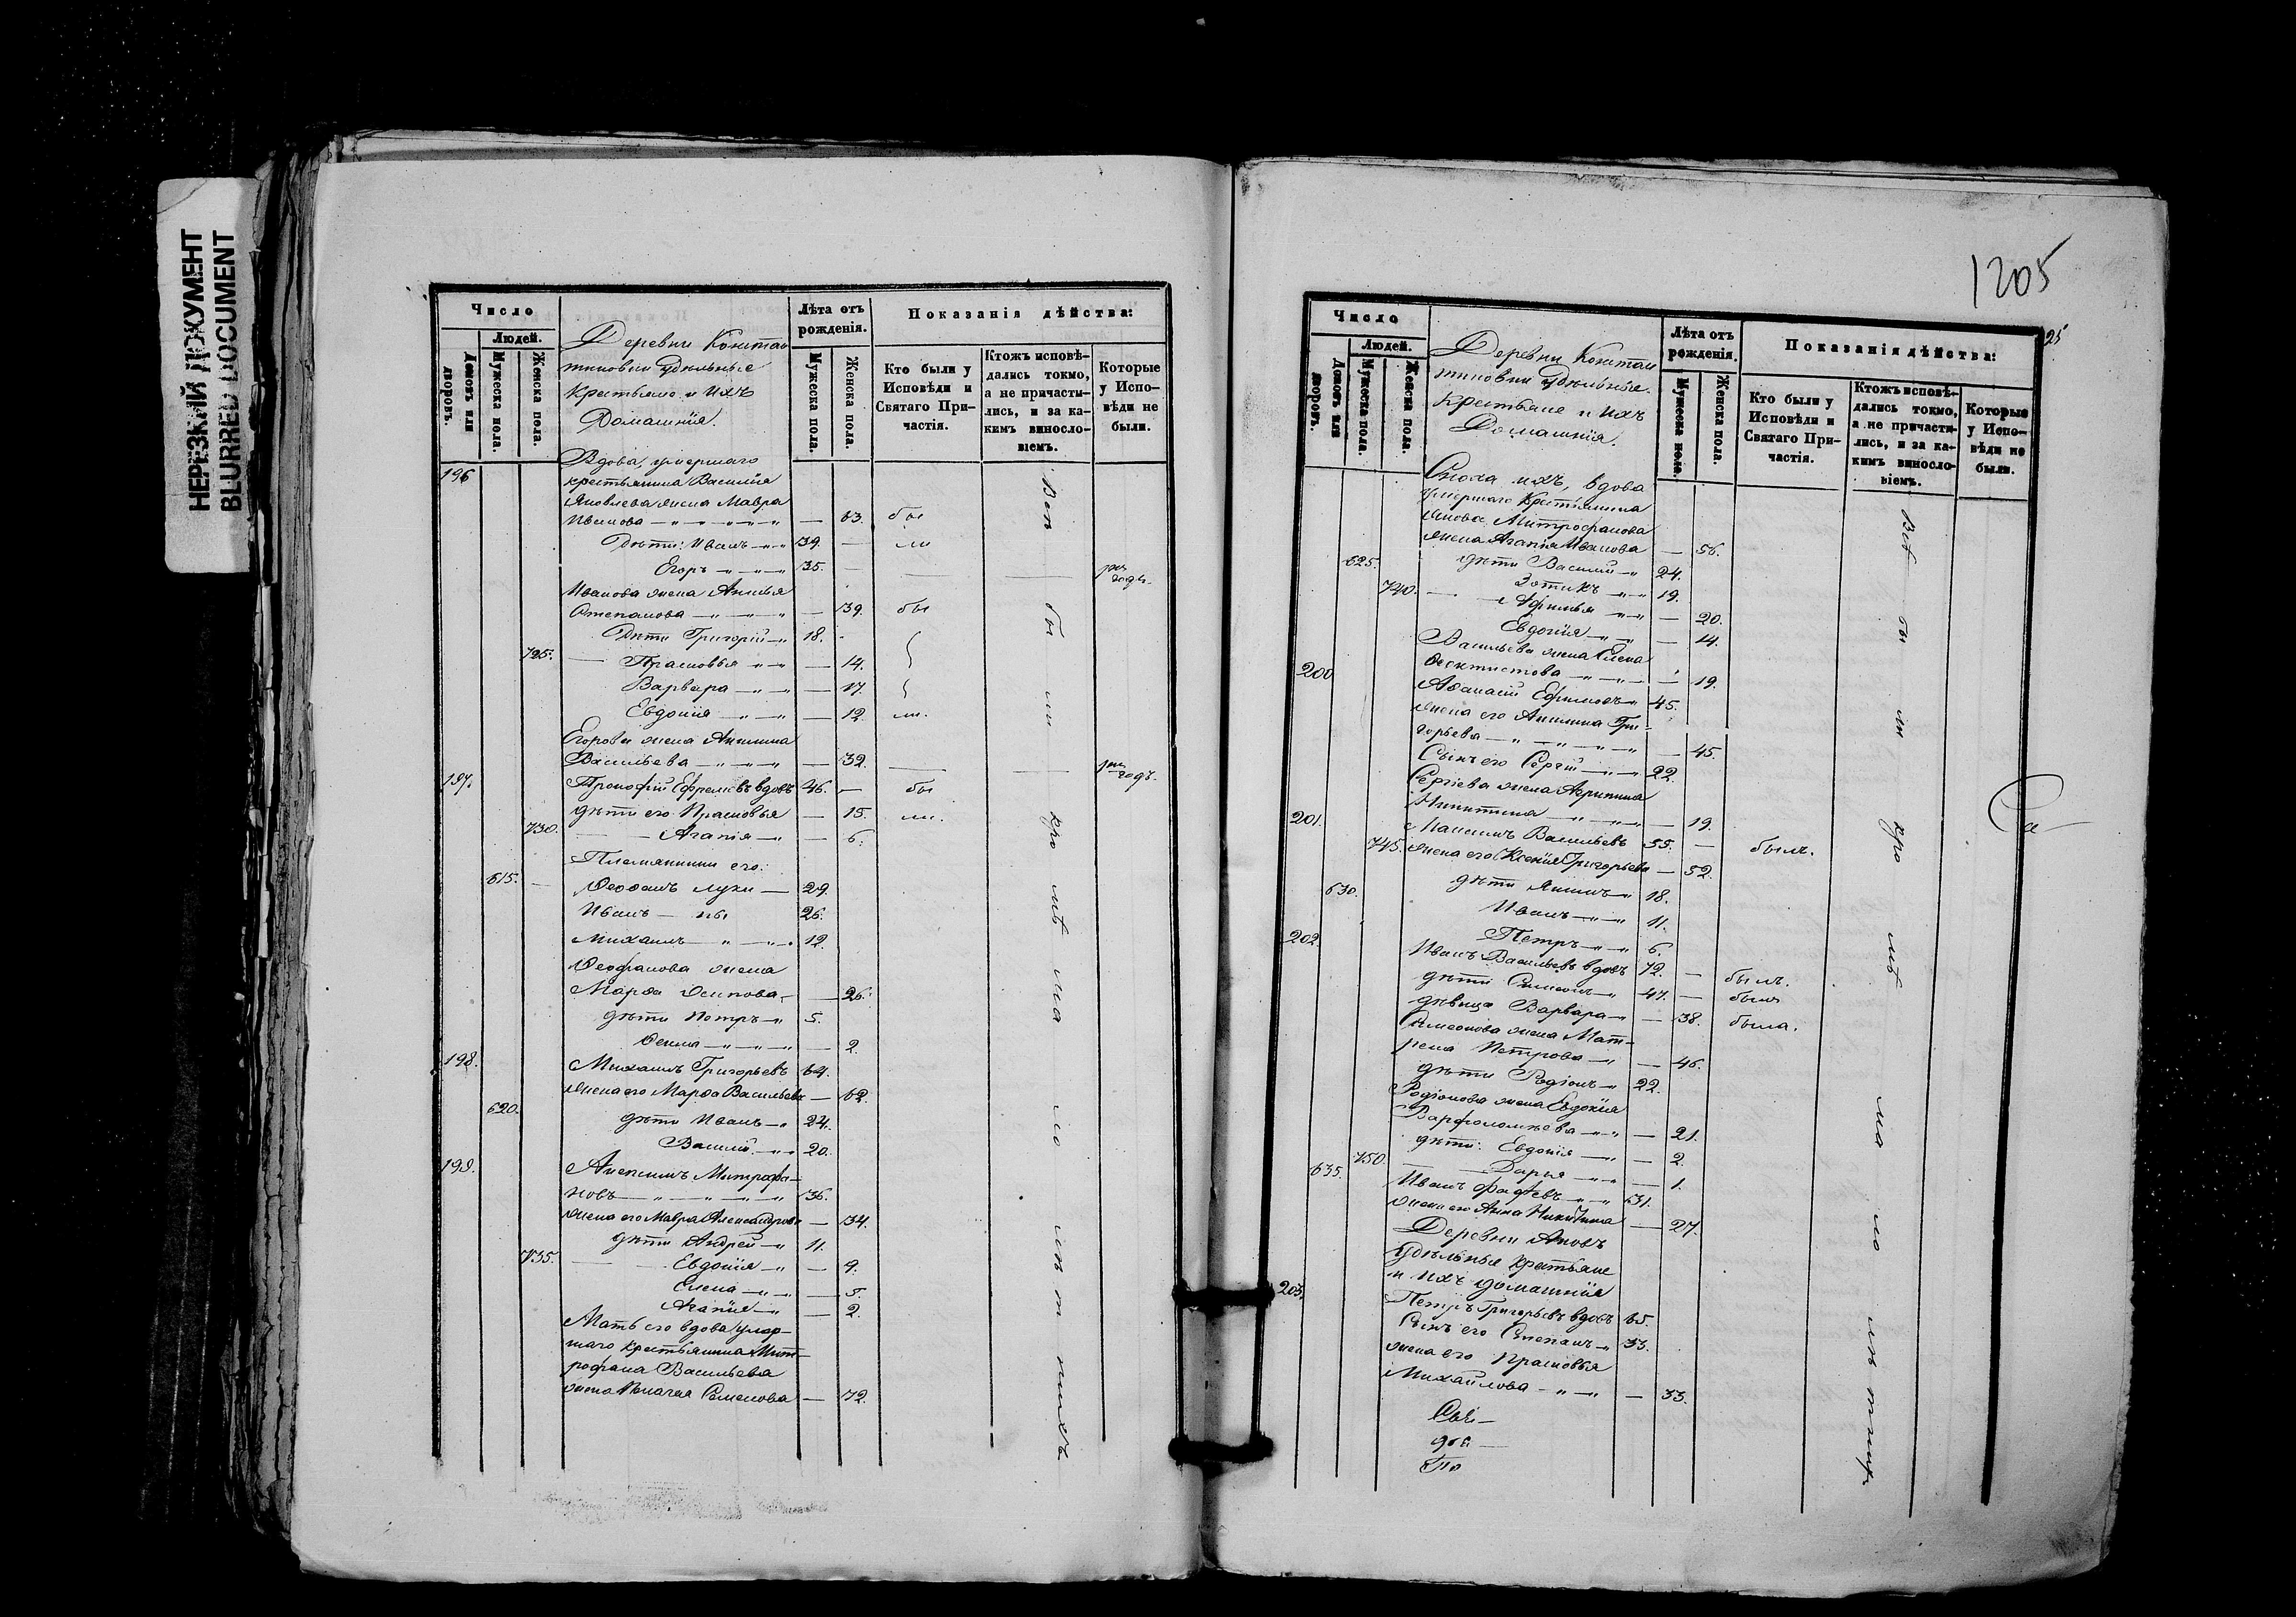 НЕРЕЗКИЙ ДОКУМЕНТ
BLURRED DOCUMENT
Число
Людей.
Домовъ или дворовъ.
Мужеска пола.
Женска пола.
Деревни Констан
тиновки Удѣльные
крестьяне и ихъ
Домашнія.
Лѣта отъ рожденія.
Мужеска пола.
Женска пола.
Показанія дѣйства:
Кто были у Исповѣди и Святаго При-
частія.
Ктожъ исповѣ-
дались токмо,
а не причасти-
лись, и за ка-
кимъ виносло-
віемъ.
Которые
у Испо-
вѣди не
были.
196 Вдова, умершаго
крестьянина Василія
Яковлева жена Мавра
Иванова — 63. бы
Дѣти: Иванъ 39. — ли
Егоръ 35. —
Иванова жена
Степанова — 39. бы
Дѣти Григорій 18.
725. Прасковья — 14.
Варвара — 17.
Евдокія — 12. ли.
Егорова жена Акилина
Васильева — 32.
197. Прокофій Ефремовъ вдовъ 46. — бы
дѣти его Прасковья — 15. ли.
730. Агапія — 6.
Племянники его:
615. Ѳеофанъ Луки 29.
Иванъ 26.
Михаилъ 12.
Ѳеофанова жена
Марѳа Осипова — 26.
дѣти Петръ 5.
— 2.
198. Михаилъ Григорьевъ 64.
жена его Марѳа Васильева — 62.
620. дѣти Иванъ 24.
Василій 20.
199. Митрофа-
новъ 36.
жена его Мавра Александрова — 34.
дѣти Андрей 11.
735. Евдокія — 9.
Елена — 5.
Агапія — 2.
Мать его вдова умер-
шаго крестьянина Мит-
рофана Васильева
жена Семенова — 72.
1205
25
Число
Людей.
Домовъ или дворовъ.
Мужеска пола.
Женска пола.
Деревни Констан
тиновки Удѣльные
Крестьяне и ихъ
Домашнія.
Лѣта отъ рожденія.
Мужеска пола.
Женска пола.
Показанія дѣйства:
Кто были у
Исповѣди и
Святаго При-
частія.
Ктожъ исповѣ-
дались токмо,
а не причасти-
лись, и за ка-
кимъ виносло-
віемъ.
Которые
у Испо-
вѣди не
были.
Сноха ихъ, вдова
умершаго Крестьянина
Якова Митрофанова
жена Агапія Иванова — 56.
625. дѣти Василій 24.
Зотикъ 19.
740. — 20.
Евдокія — 14.
Васильева жена Елена
Ѳеоктистова — 19.
200 Аѳанасій Ефимовъ 45.
жена его Акилина Гри-
горьева — 45.
Сынъ его Сергій 22.
Сергіева жена Агрипина
Никитина — 19.
201. Максимъ Васильевъ 55. — былъ.
745. жена его Ксенія Григорьева — 52.
630. дѣти Якимъ 18.
Иванъ 11.
Петръ 6.
202. Иванъ Васильевъ вдовъ 72. — былъ.
дѣти Симеонъ 47. — былъ
дѣвица Варвара — 38. была.
Симеонова жена Мат-
рена Петрова — 46.
дѣти Родіонъ 22.
Родіонова жена Евдокія
Варфоломѣева — 21.
дѣти: Евдокія — 2.
750. Дарья — 1.
635. Иванъ 31.
жена его Анна Никитина — 27.
Деревни
Удѣльные крестьяне
и ихъ домашнія
203. Петръ Григорьевъ вдовъ 65.
Сынъ его Степанъ 33.
жена его Прасковья
Михайлова — 33.